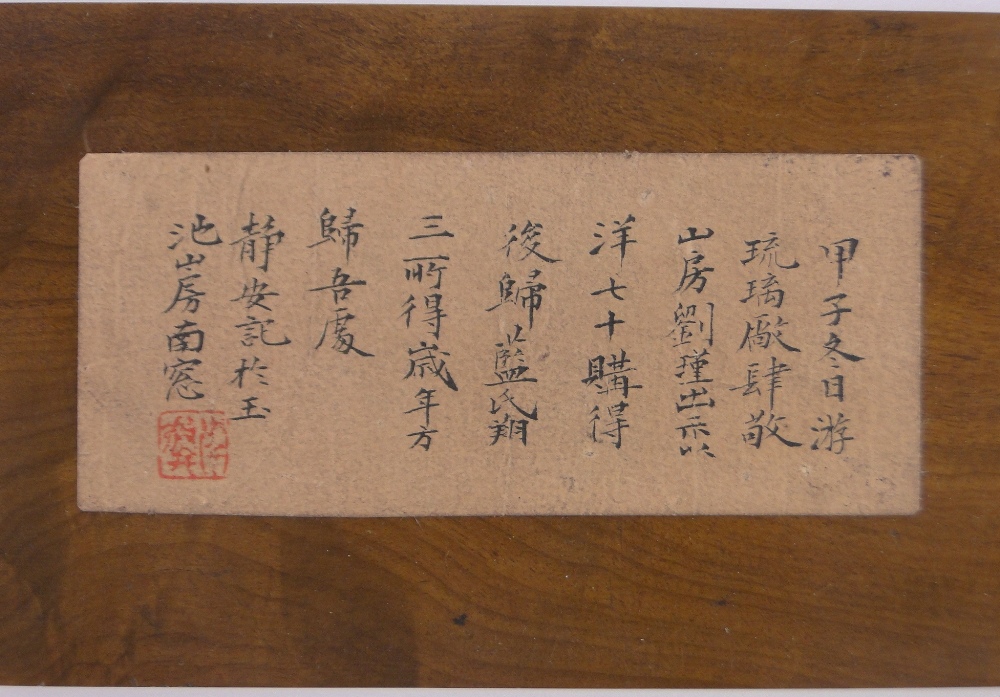 甲子冬日游
琉璃厰肆敬
山房劉瑾出示以
洋七十購得
後歸藍氏翔
三所得歲年方
歸吾處
靜安記於玉
池山房南窓